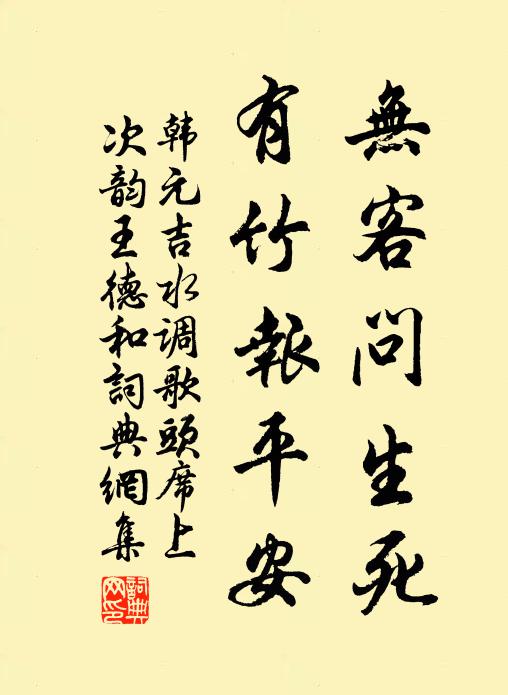 無客問生死
有竹報平安
韩元吉水调歌頭席上
次韵王德和詞典網集
詞典网印